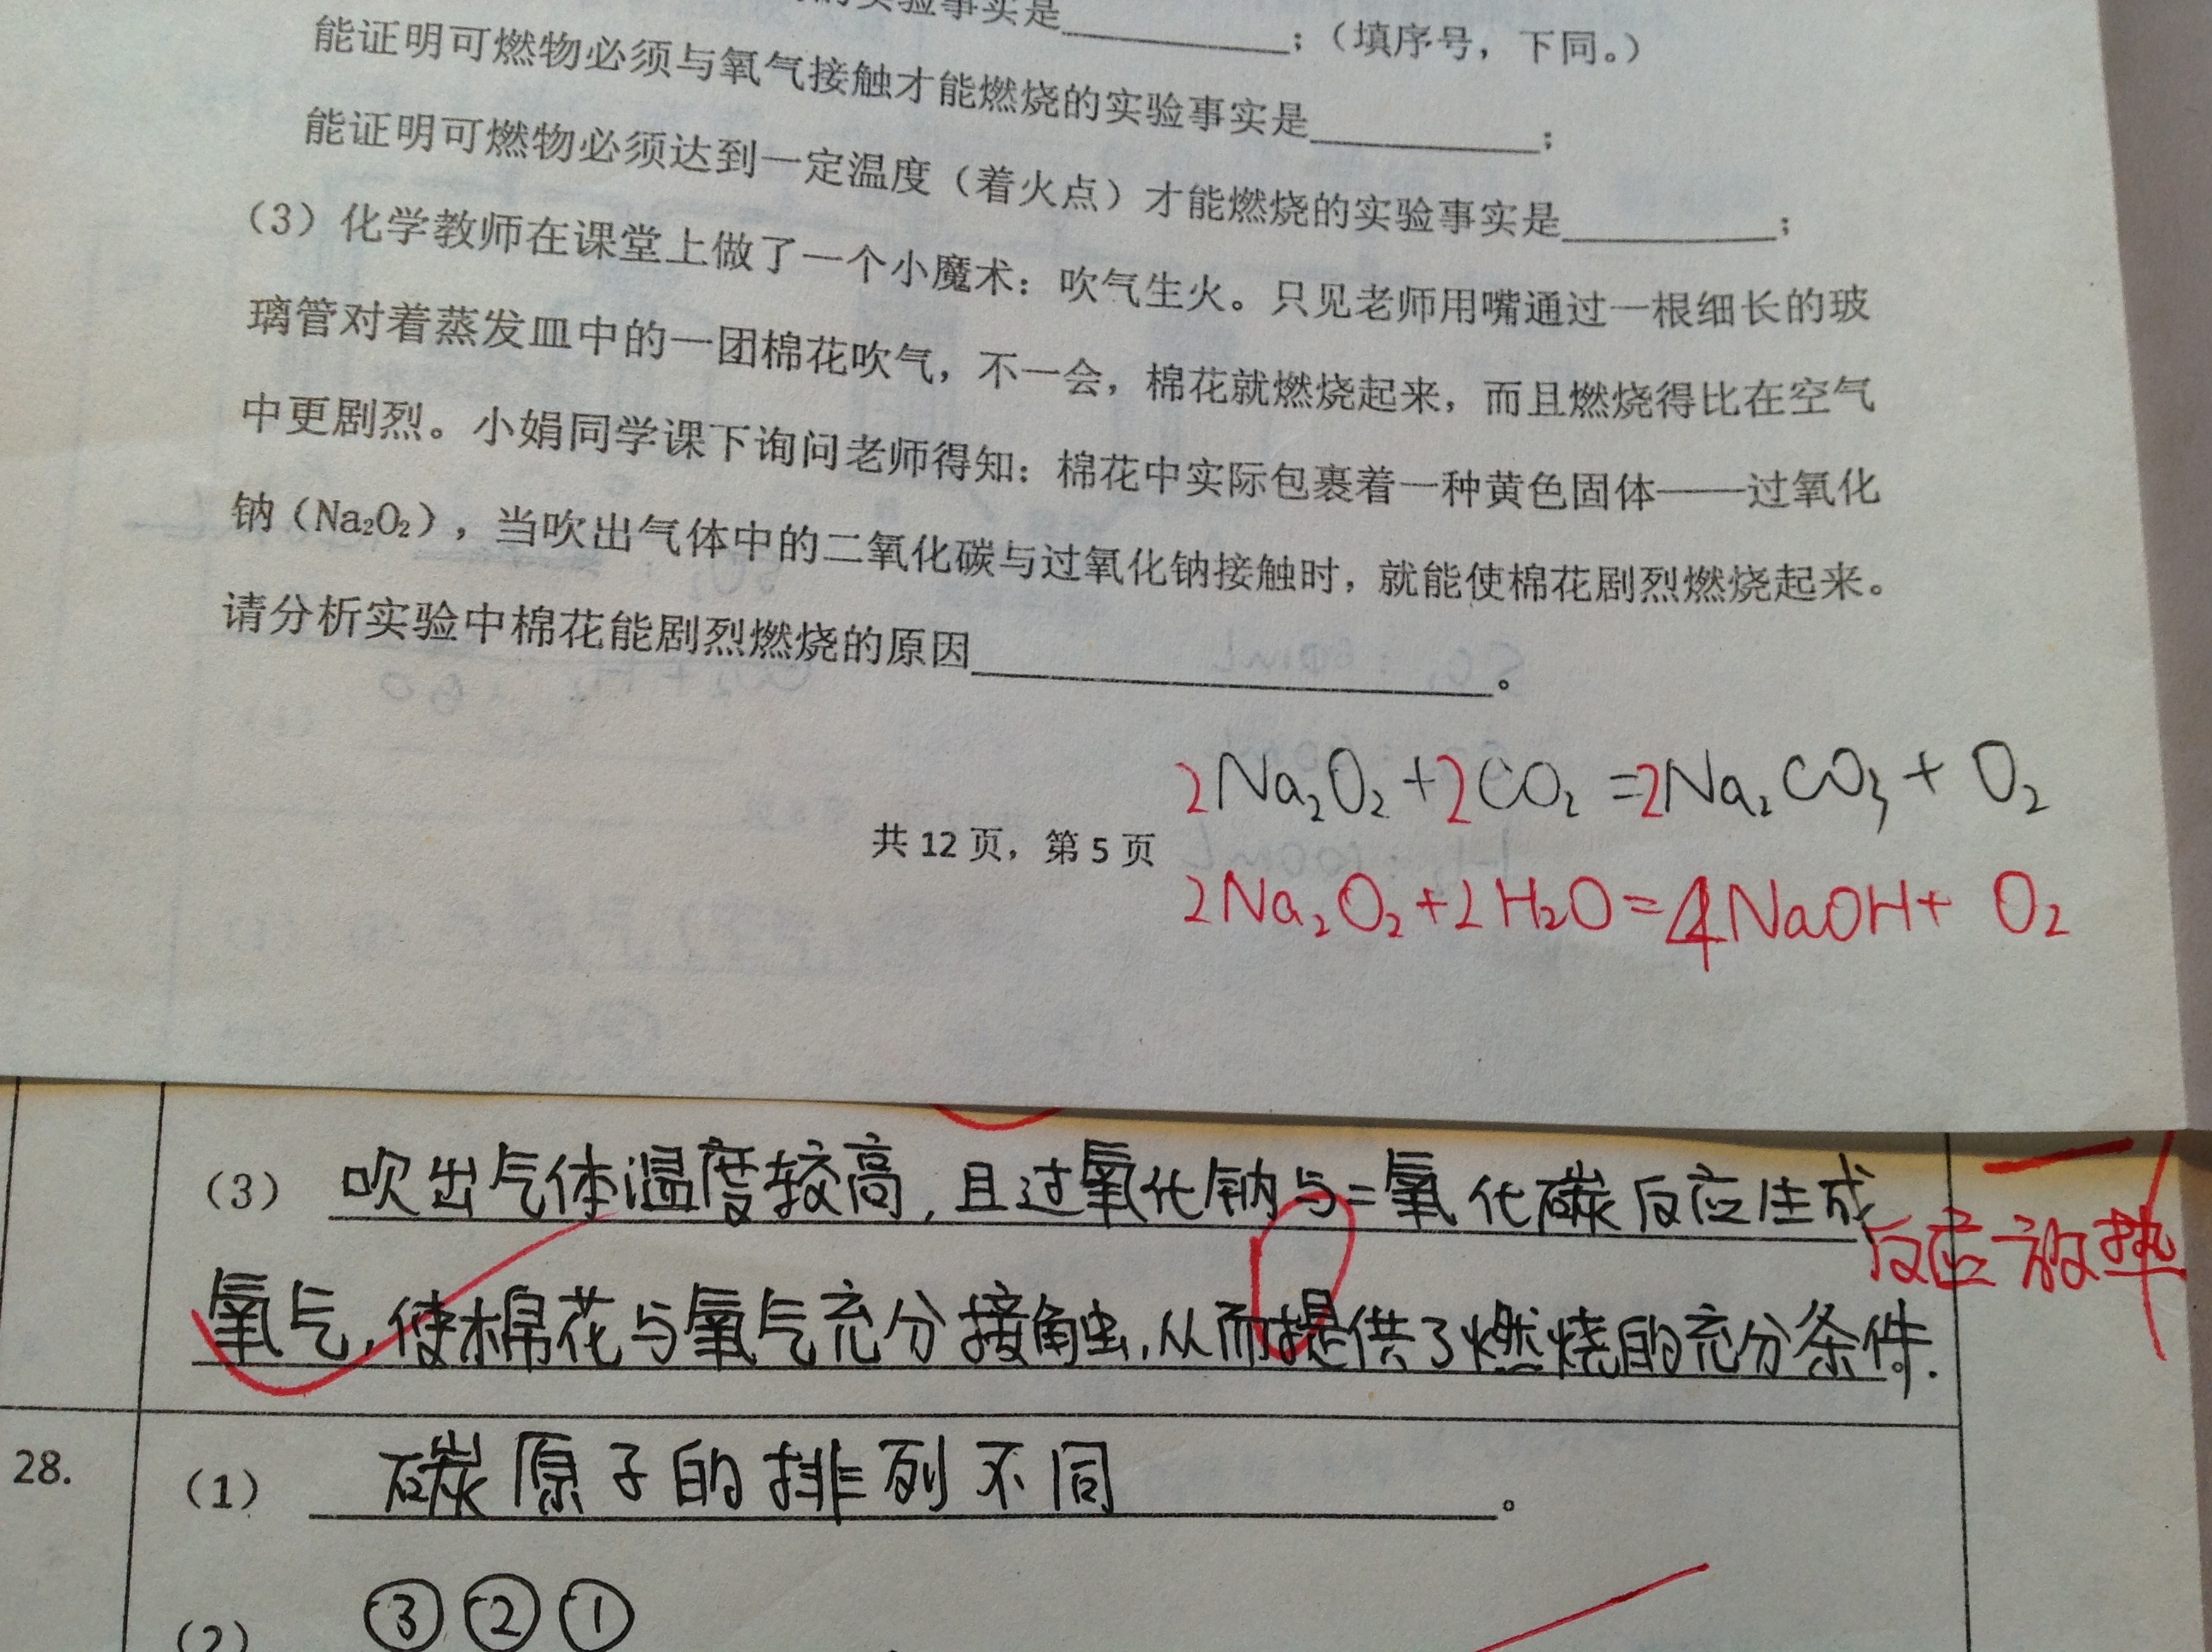 的实验事实是________；（填序号，下同。）
能证明可燃物必须与氧气接触才能燃烧的实验事实是________；
能证明可燃物必须达到一定温度（着火点）才能燃烧的实验事实是________；
（3）化学教师在课堂上做了一个小魔术：吹气生火。只见老师用嘴通过一根细长的玻
璃管对着蒸发皿中的一团棉花吹气，不一会，棉花就燃烧起来，而且燃烧得比在空气
中更剧烈。小娟同学课下询问老师得知：棉花中实际包裹着一种黄色固体——过氧化
钠（Na₂O₂），当吹出气体中的二氧化碳与过氧化钠接触时，就能使棉花剧烈燃烧起来。
请分析实验中棉花能剧烈燃烧的原因________。
2Na₂O₂+2CO₂=2Na₂CO₃+O₂
共 12 页，第 5 页
2Na₂O₂+2H₂O=4NaOH+O₂
（3） 吹出气体温度较高，且过氧化钠与二氧化碳反应生成
反应放热
氧气，使棉花与氧气充分接触，从而提供了燃烧的充分条件.
28. （1） 碳原子的排列不同。
（2） ③②①